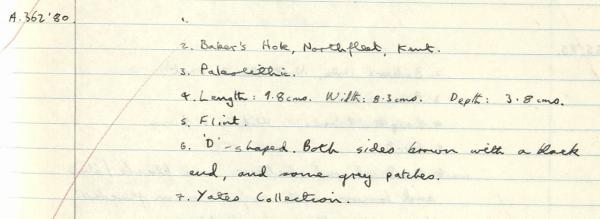 A.362'80.
1.
2. Baker's Hole, Northfleet, Kent.
3. Paleolithic.
4. Length: 9.8cms. Width: 8.3cms. Depth: 3.8cms.
5. Flint.
6. 'D'-shaped. Both sides brown with a black
end, and some grey patches.
7. Yates Collection.